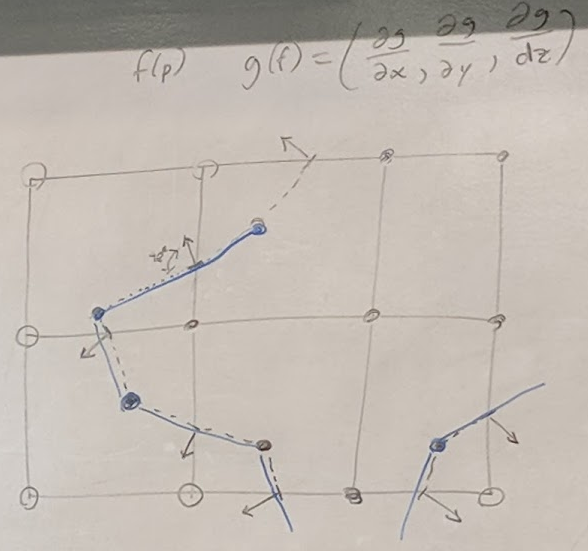 f(p) g(f) = (∂g/∂x, ∂g/∂y, ∂g/dz)